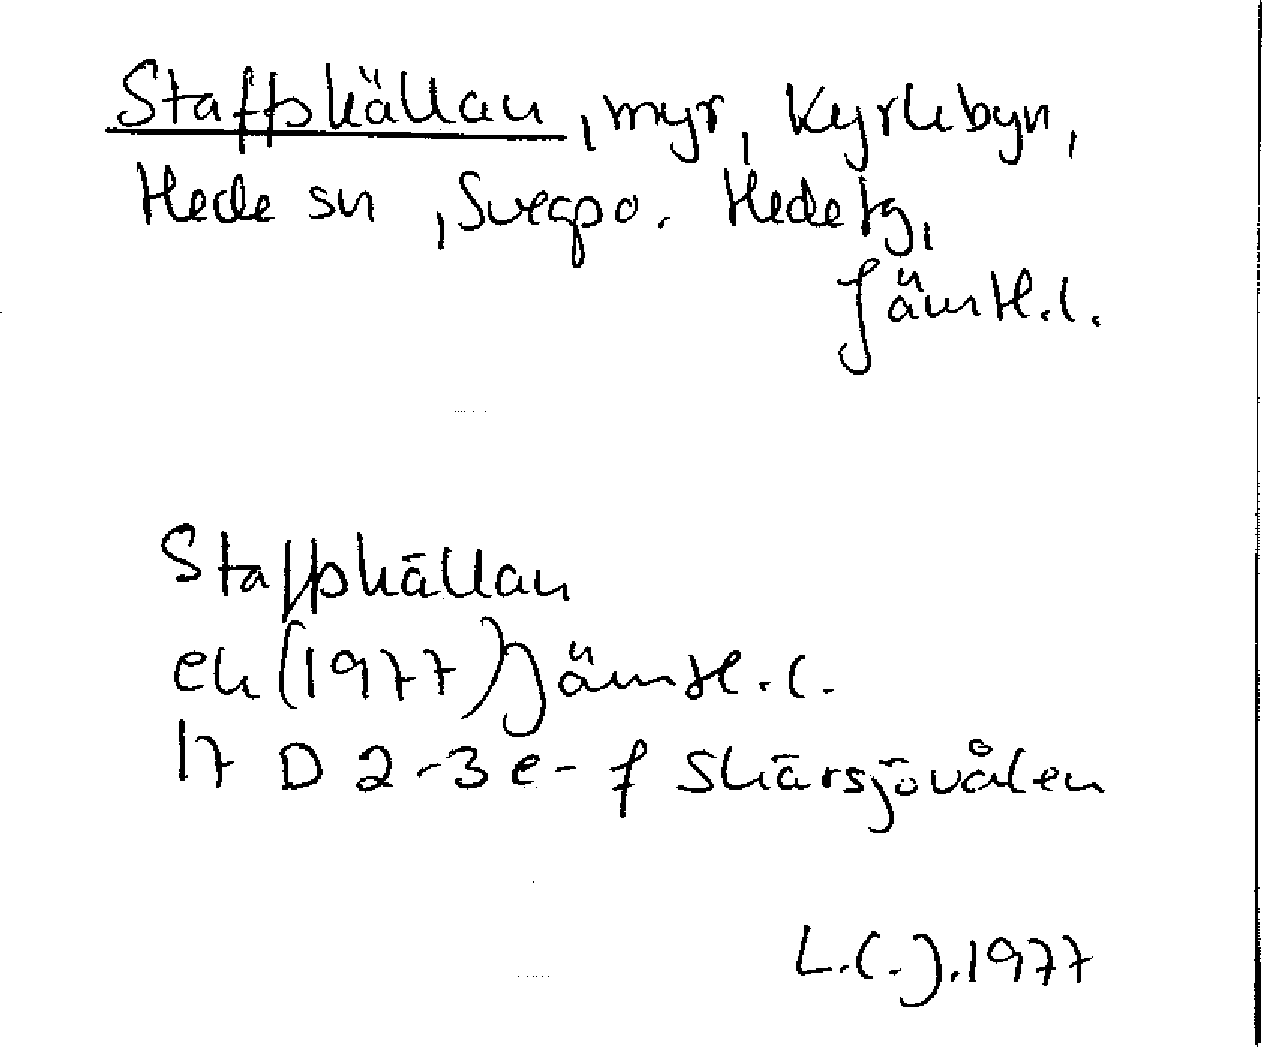 Staffskällan, myr, Kyrkbyn,
Hede sn, Svegpo. Hede tg,
Jämtl.l.
Staffskällan
ek (1977) Jämtl.l.
17 D 2-3 e-f Skärsjövålen
L.(.).1977